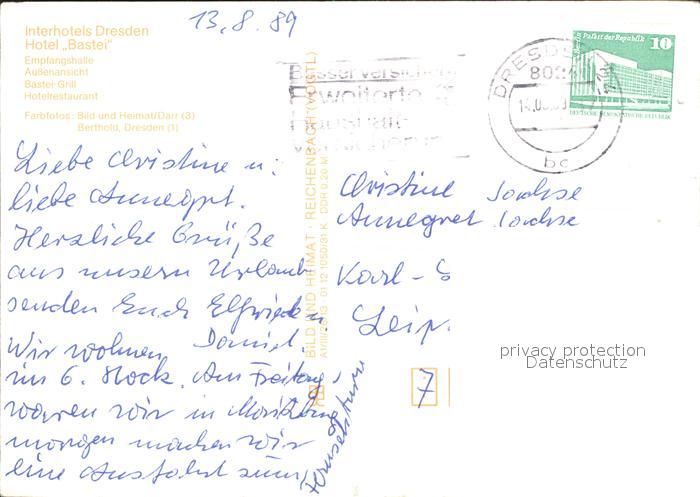 13.8.89
Interhotels Dresden
Hotel „Bastei"
Empfangshalle
Außenansicht
Bastei-Grill
Hotelrestaurant
Farbfotos: Bild und Heimat/Darr (3)
Berthold, Dresden (1)
Liebe Christine u.
liebe Annegret.
Herzliche Grüße
aus unserm Urlaub
senden Euch Elfriede u.
Daniel.
Wir wohnen
im 6. Stock. Am Freitag
waren wir in Moritzburg,
morgen machen wir
eine Ausfahrt zum
Fernsehturm
BILD UND HEIMAT · REICHENBACH (VOGTL)
Besser versichern
erweiterte
Haushalt
DRESDEN
14.08.89
bc
Palast der Republik
10
DEUTSCHE DEMOKRATISCHE REPUBLIK
Christine
Annegret
Karl-
Leip
7
privacy protection
Datenschutz